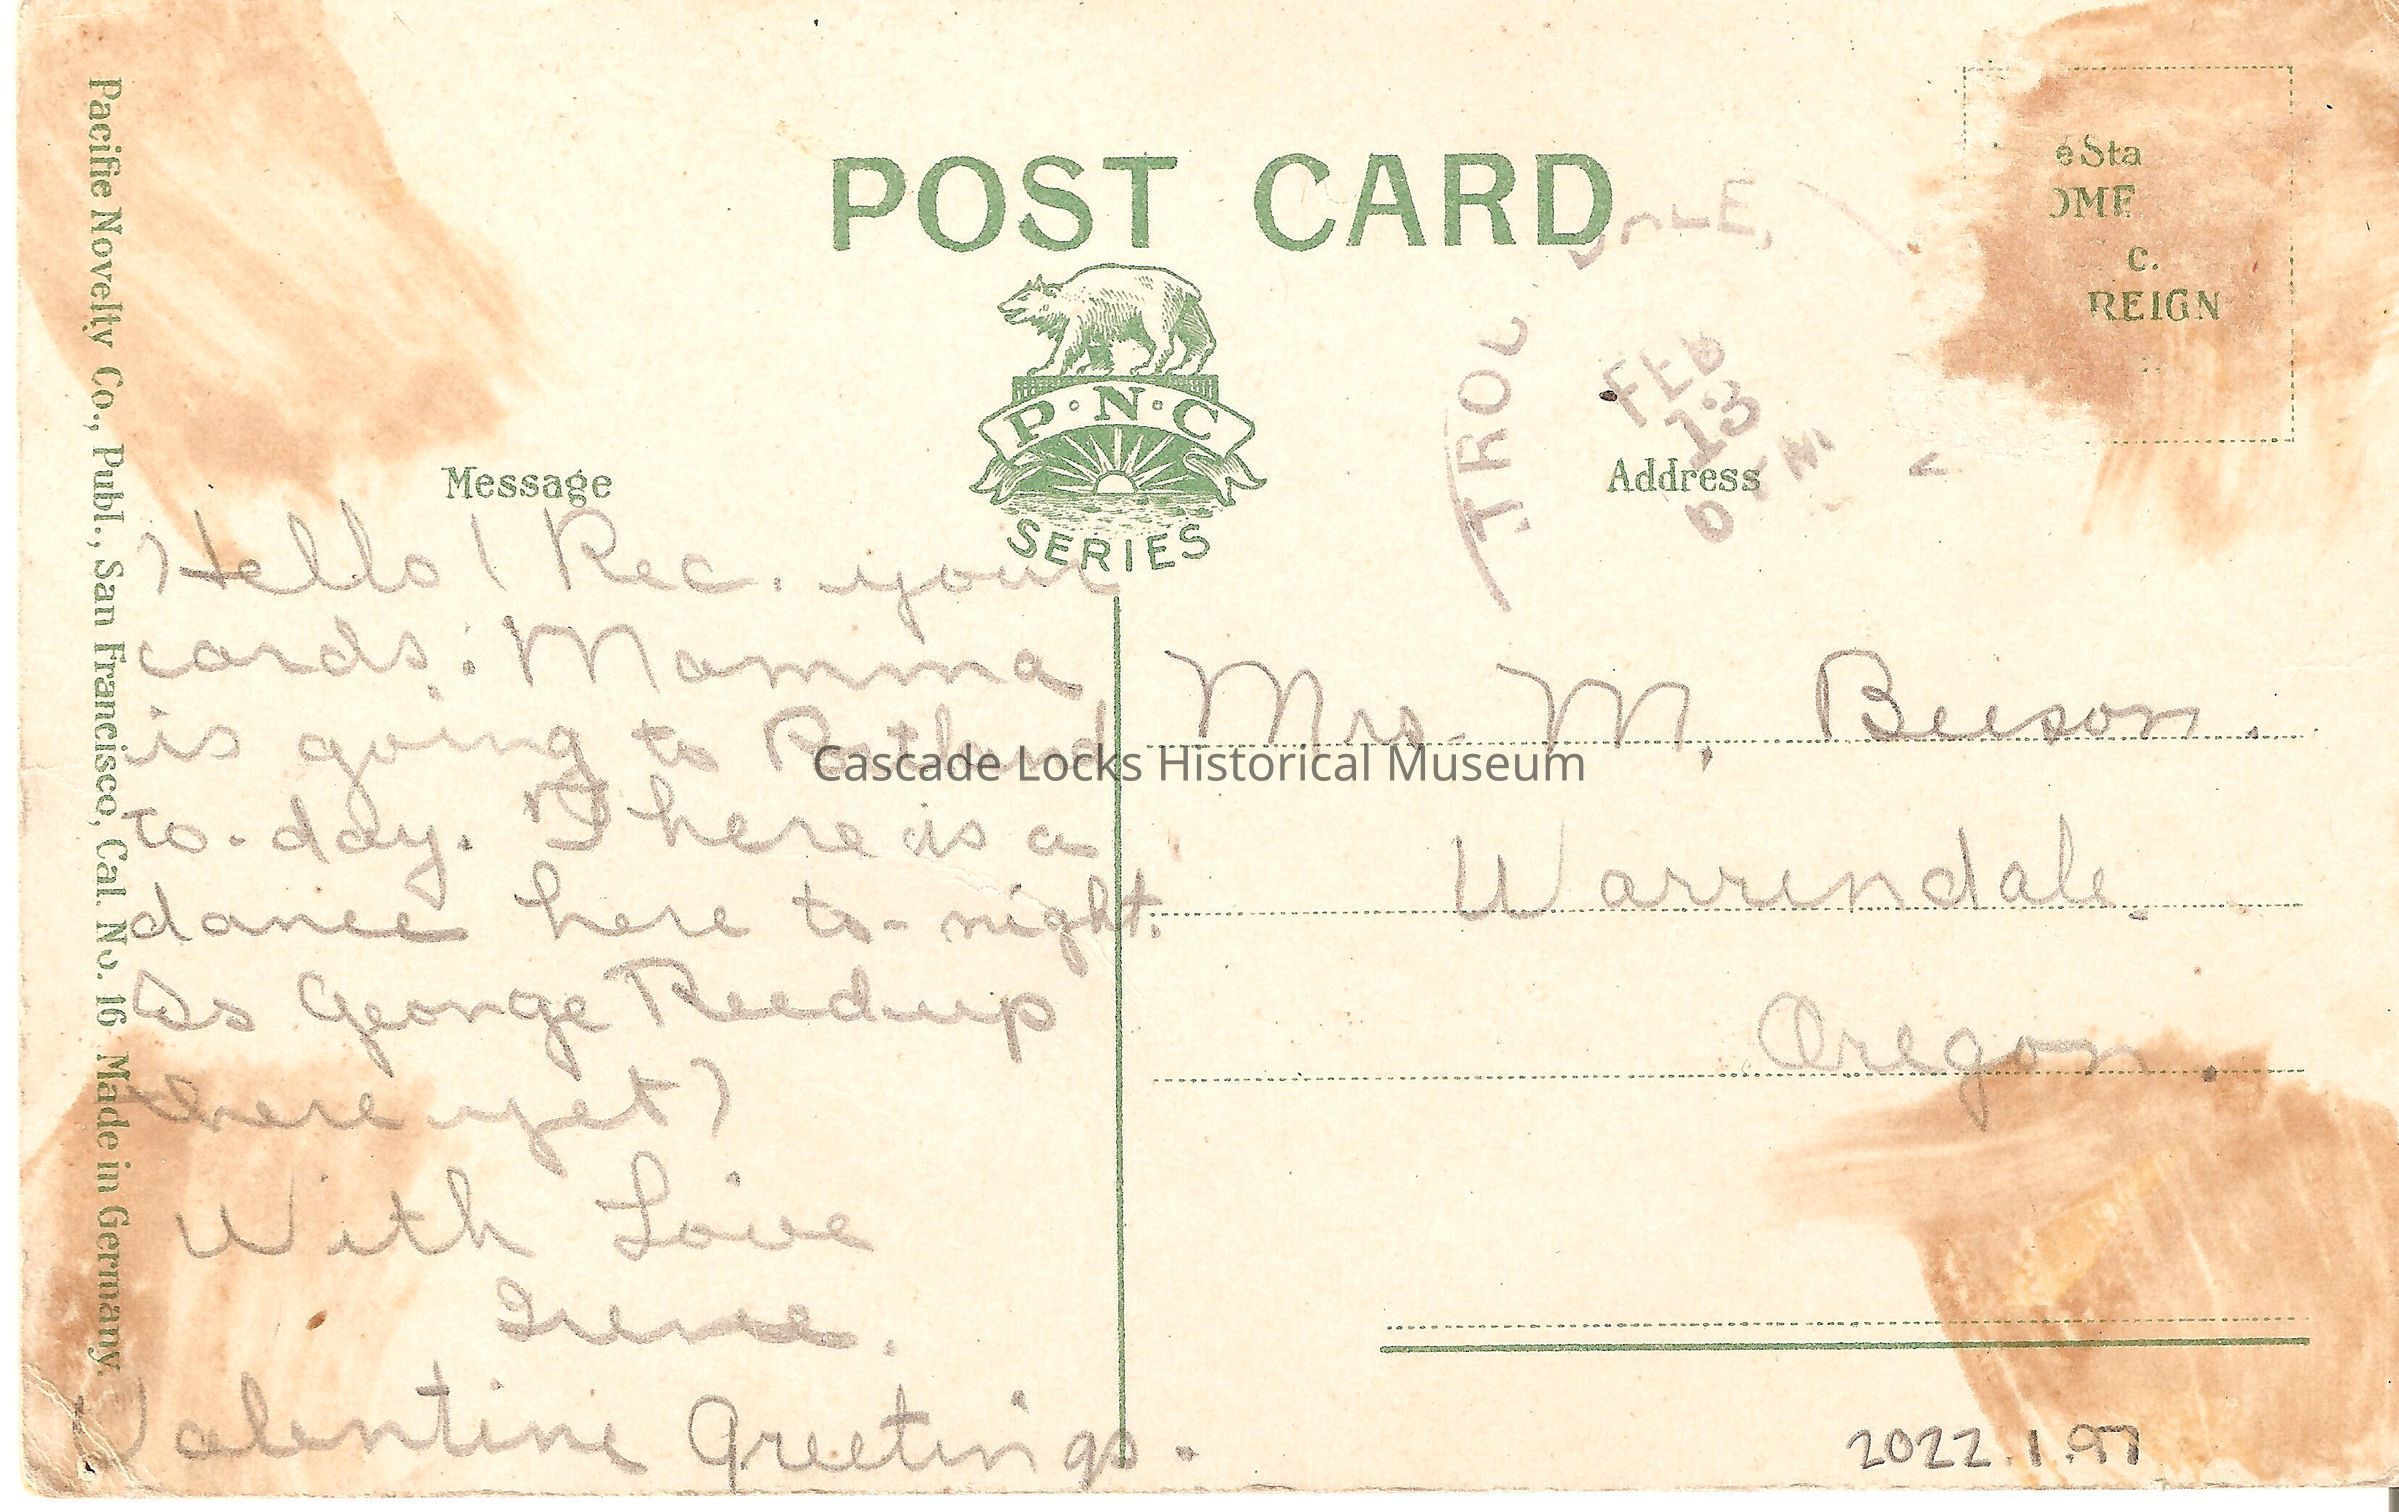 POST CARD
P·N·C
SERIES
Pacific Novelty Co., Publ., San Francisco, Cal. No. 16 Made in Germany.
e Sta
OME
c.
REIGN
TROU
DALE,
FEB
13
Message
Address
Hello! Rec. your
cards. Mamma
is going to Portland
to-day. There is a
dance here to-night.
Is George Reed up
there yet?
With Love
Irene.
Valentine Greetings.
Mrs. M. Beeson.
Warrendale.
Oregon.
Cascade Locks Historical Museum
2022.1.97